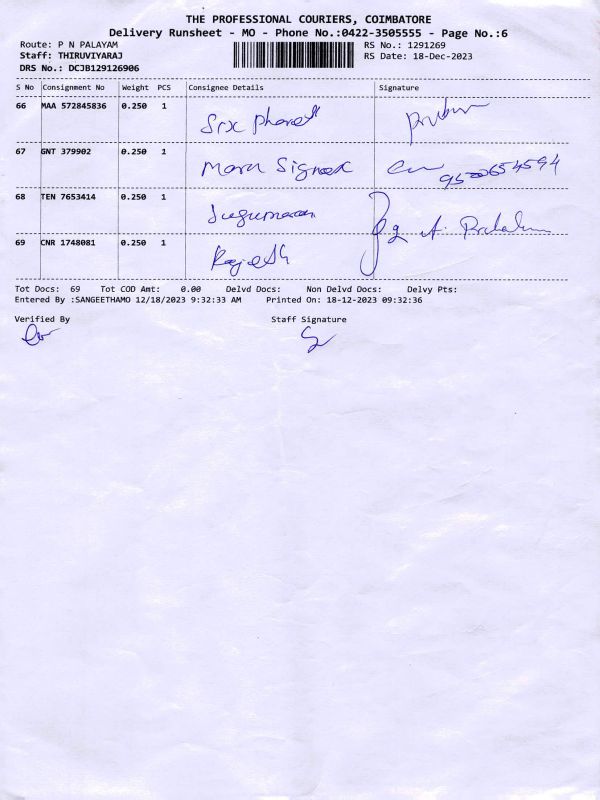 THE PROFESSIONAL COURIERS, COIMBATORE
Delivery Runsheet - MO - Phone No.:0422-3505555 - Page No.:6
Route: P N PALAYAM RS No.: 1291269
Staff: THIRUVIYARAJ RS Date: 18-Dec-2023
DRS No.: DCJB129126906
S No Consignment No Weight PCS Consignee Details Signature
66 MAA 572845836 0.250 1 Six
67 GNT 379902 0.250 1
68 TEN 7653414 0.250 1 Sugumaran
69 CNR 1748081 0.250 1 Rajesh
Tot Docs: 69 Tot COD Amt: 0.00 Delvd Docs: Non Delvd Docs: Delvy Pts:
Entered By :SANGEETHAMO 12/18/2023 9:32:33 AM Printed On: 18-12-2023 09:32:36
Verified By Staff Signature